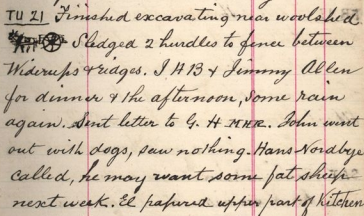 TU 21 Finished excavating near woolshed
Sledged 2 hurdles to fence between
Widerups & ridges. J H B & Jimmy Allen
for dinner & the afternoon, some rain
again. Sent letter to G. H. John went
out with dogs, saw nothing. Hans Nordbye
called, he may want some fat sheep
next week. El papered upper part of Kitchen